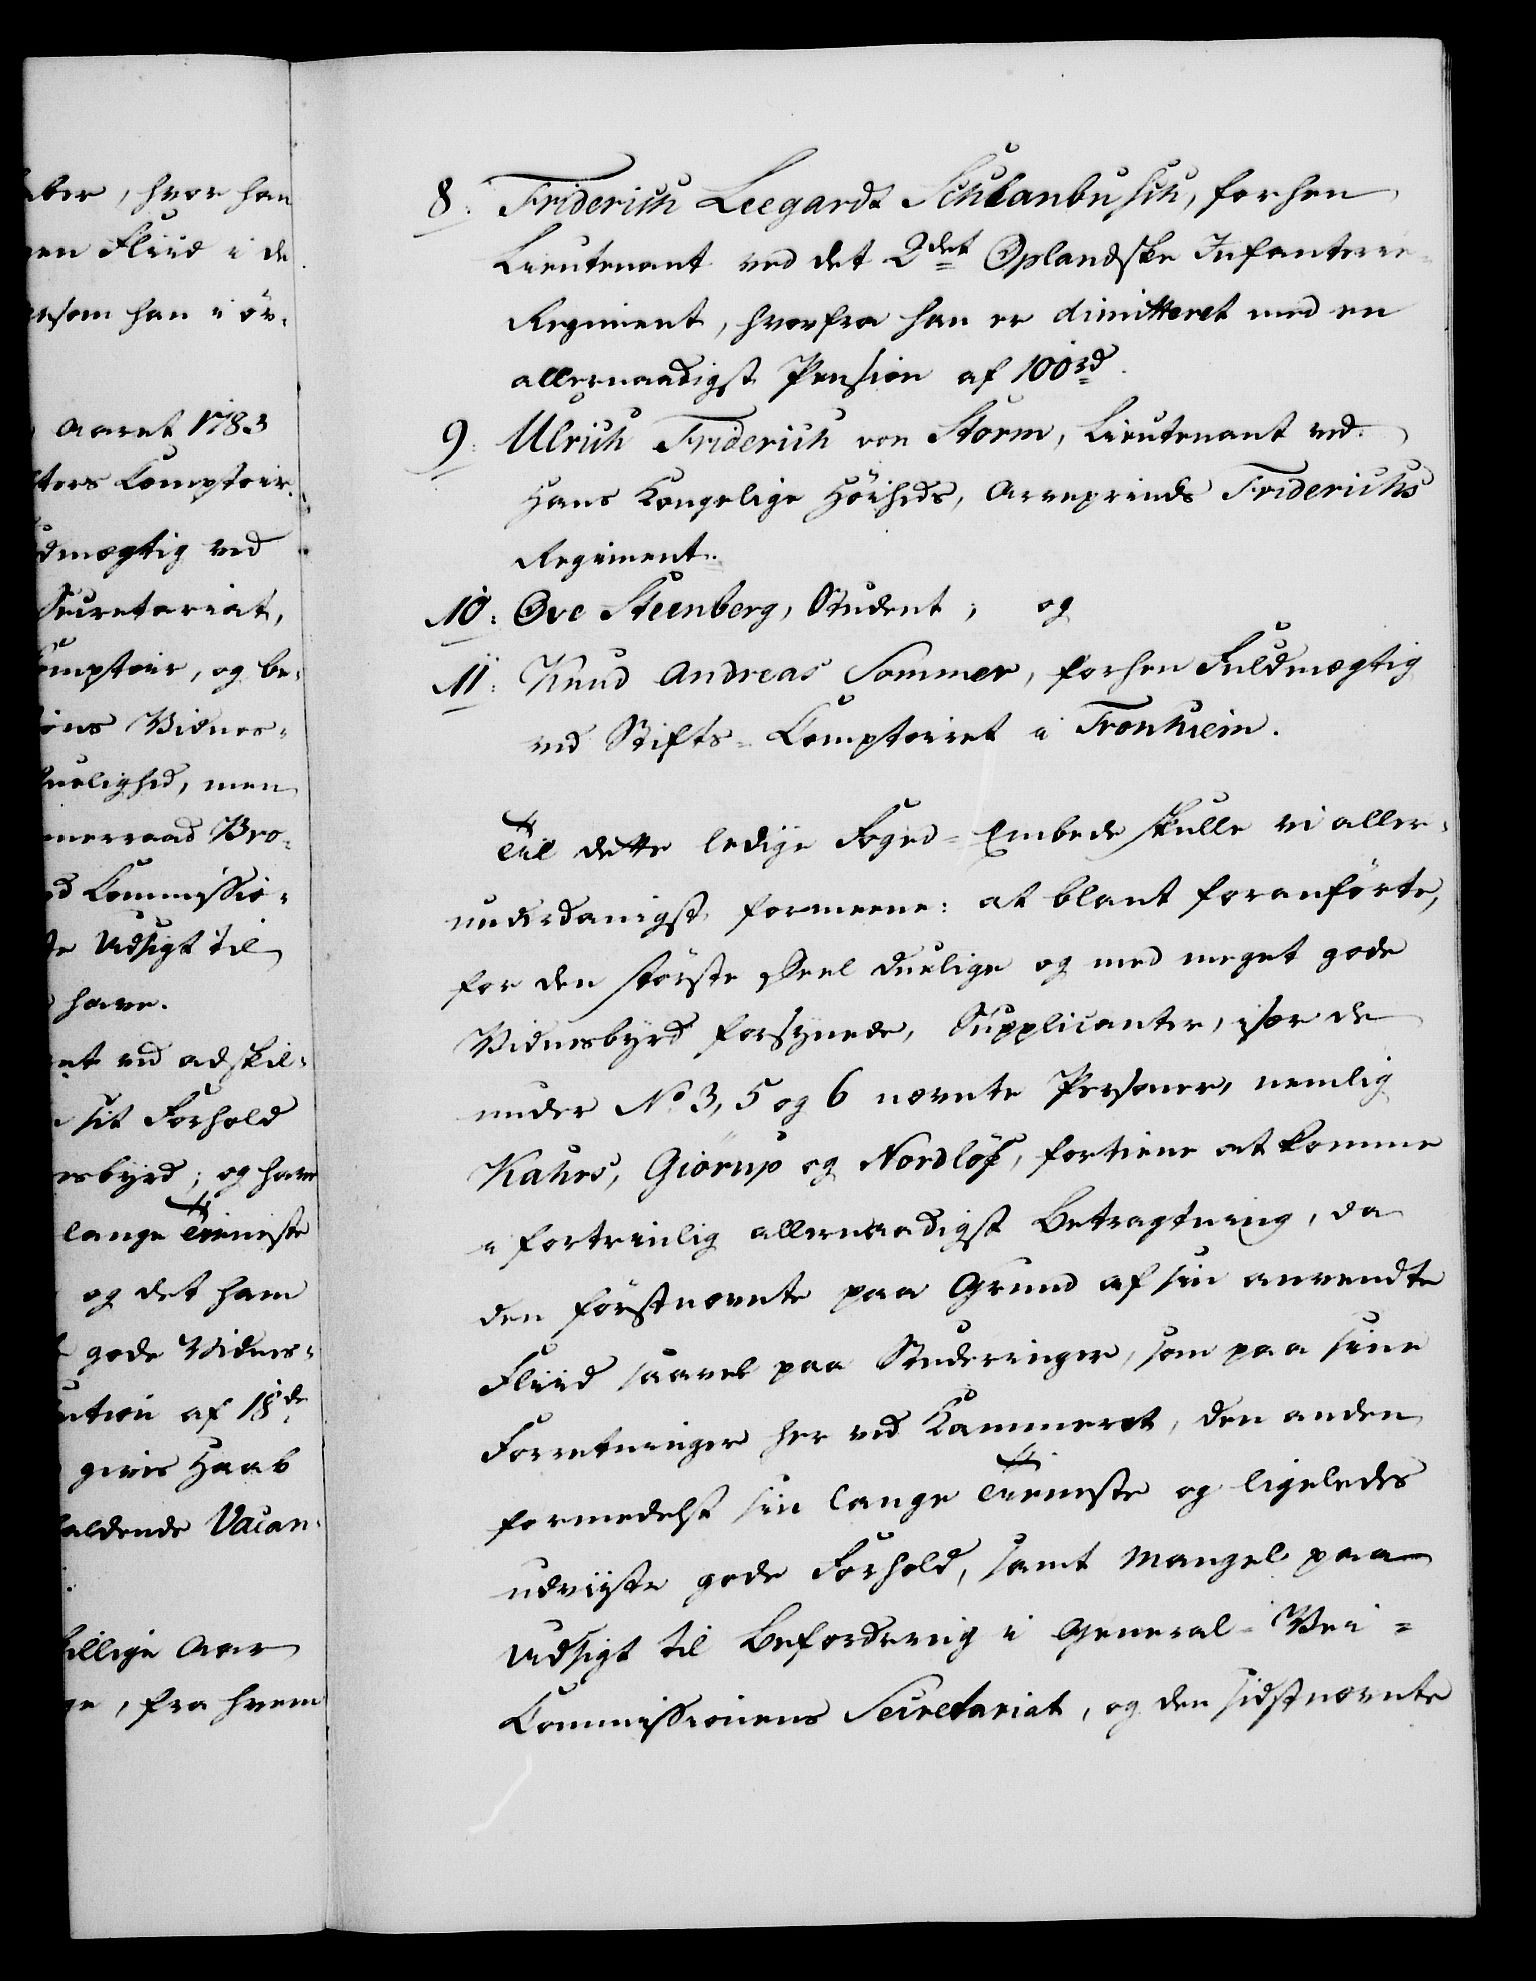 aber, hvor han
en Fliid i de
som han i öv-
Aaret 1783
tors Comptoir.
dmægtig ved
Secretariat,
omptoir, og be-
ons Vidnes-
uelighed, men
merraad Bro-
d Commissio-
te Udsigt til
have.
et ved adskil-
sit Forhold
esbyrd; og have
lange Tieneste
og det ham
gode Vidnes-
ution af 18de
givne Haab
faldende Vacan-
illige Aar
ge, fra hvem
8. Friderich Leegardt Schlanbusch, forhen
Lieutenant ved det 2det Oplandske Infanterie-
Regiment, hvorfra han er dimitteret med en
allernaadigst Pension af 100 rd.
9. Ulrich Friderich von Storm, Lieutenant ved
Hans Kongelige Höiheds, Arveprinds Friderichs
Regiment.
10. Ove Steenberg, Student; og
11. Knud Andreas Sommer, forhen Fuldmægtig
ved Stifts-Comptoiret i Tronhiem.
Til dette ledige Foged-Embede skulle vi aller-
underdanigst formeene: at blant foranförte,
for den störste Deel duelige og med meget gode
Vidnesbyrd forsynede, Supplicanter, især de
under No 3, 5 og 6 nævnte Personer, nemlig
Kahrs, Giörup og Nordlöf, fortiene at komme
i fortrinlig allernaadigst Betragtning, da
den förstnævnte paa Grund af sin anvendte
Fliid saavel paa Studeringer, som paa sine
Forretninger her ved Kammeret, den anden
formedelst sin lange Tieneste og ligeledes
udviiste gode Forhold, samt Mangel paa
Udsigt til Befordring i General-Vei-
Commissionens Secretariat, og den sidstnævnte